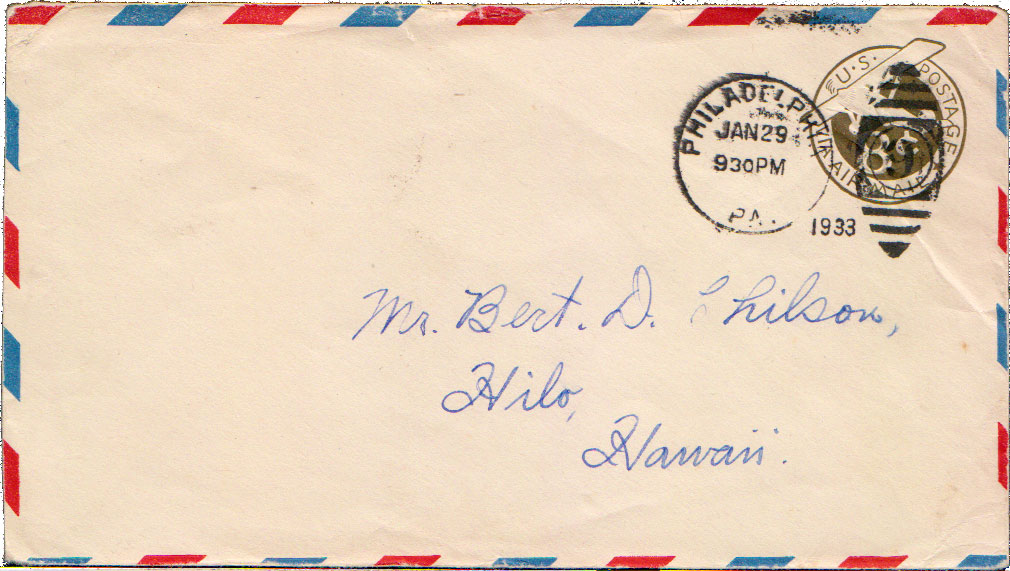 U.S. POSTAGE
VIA AIR MAIL
PHILADELPHIA
JAN 29
930PM
PA.
1933
Mr. Bert. D. Chilson,
Hilo,
Hawaii.